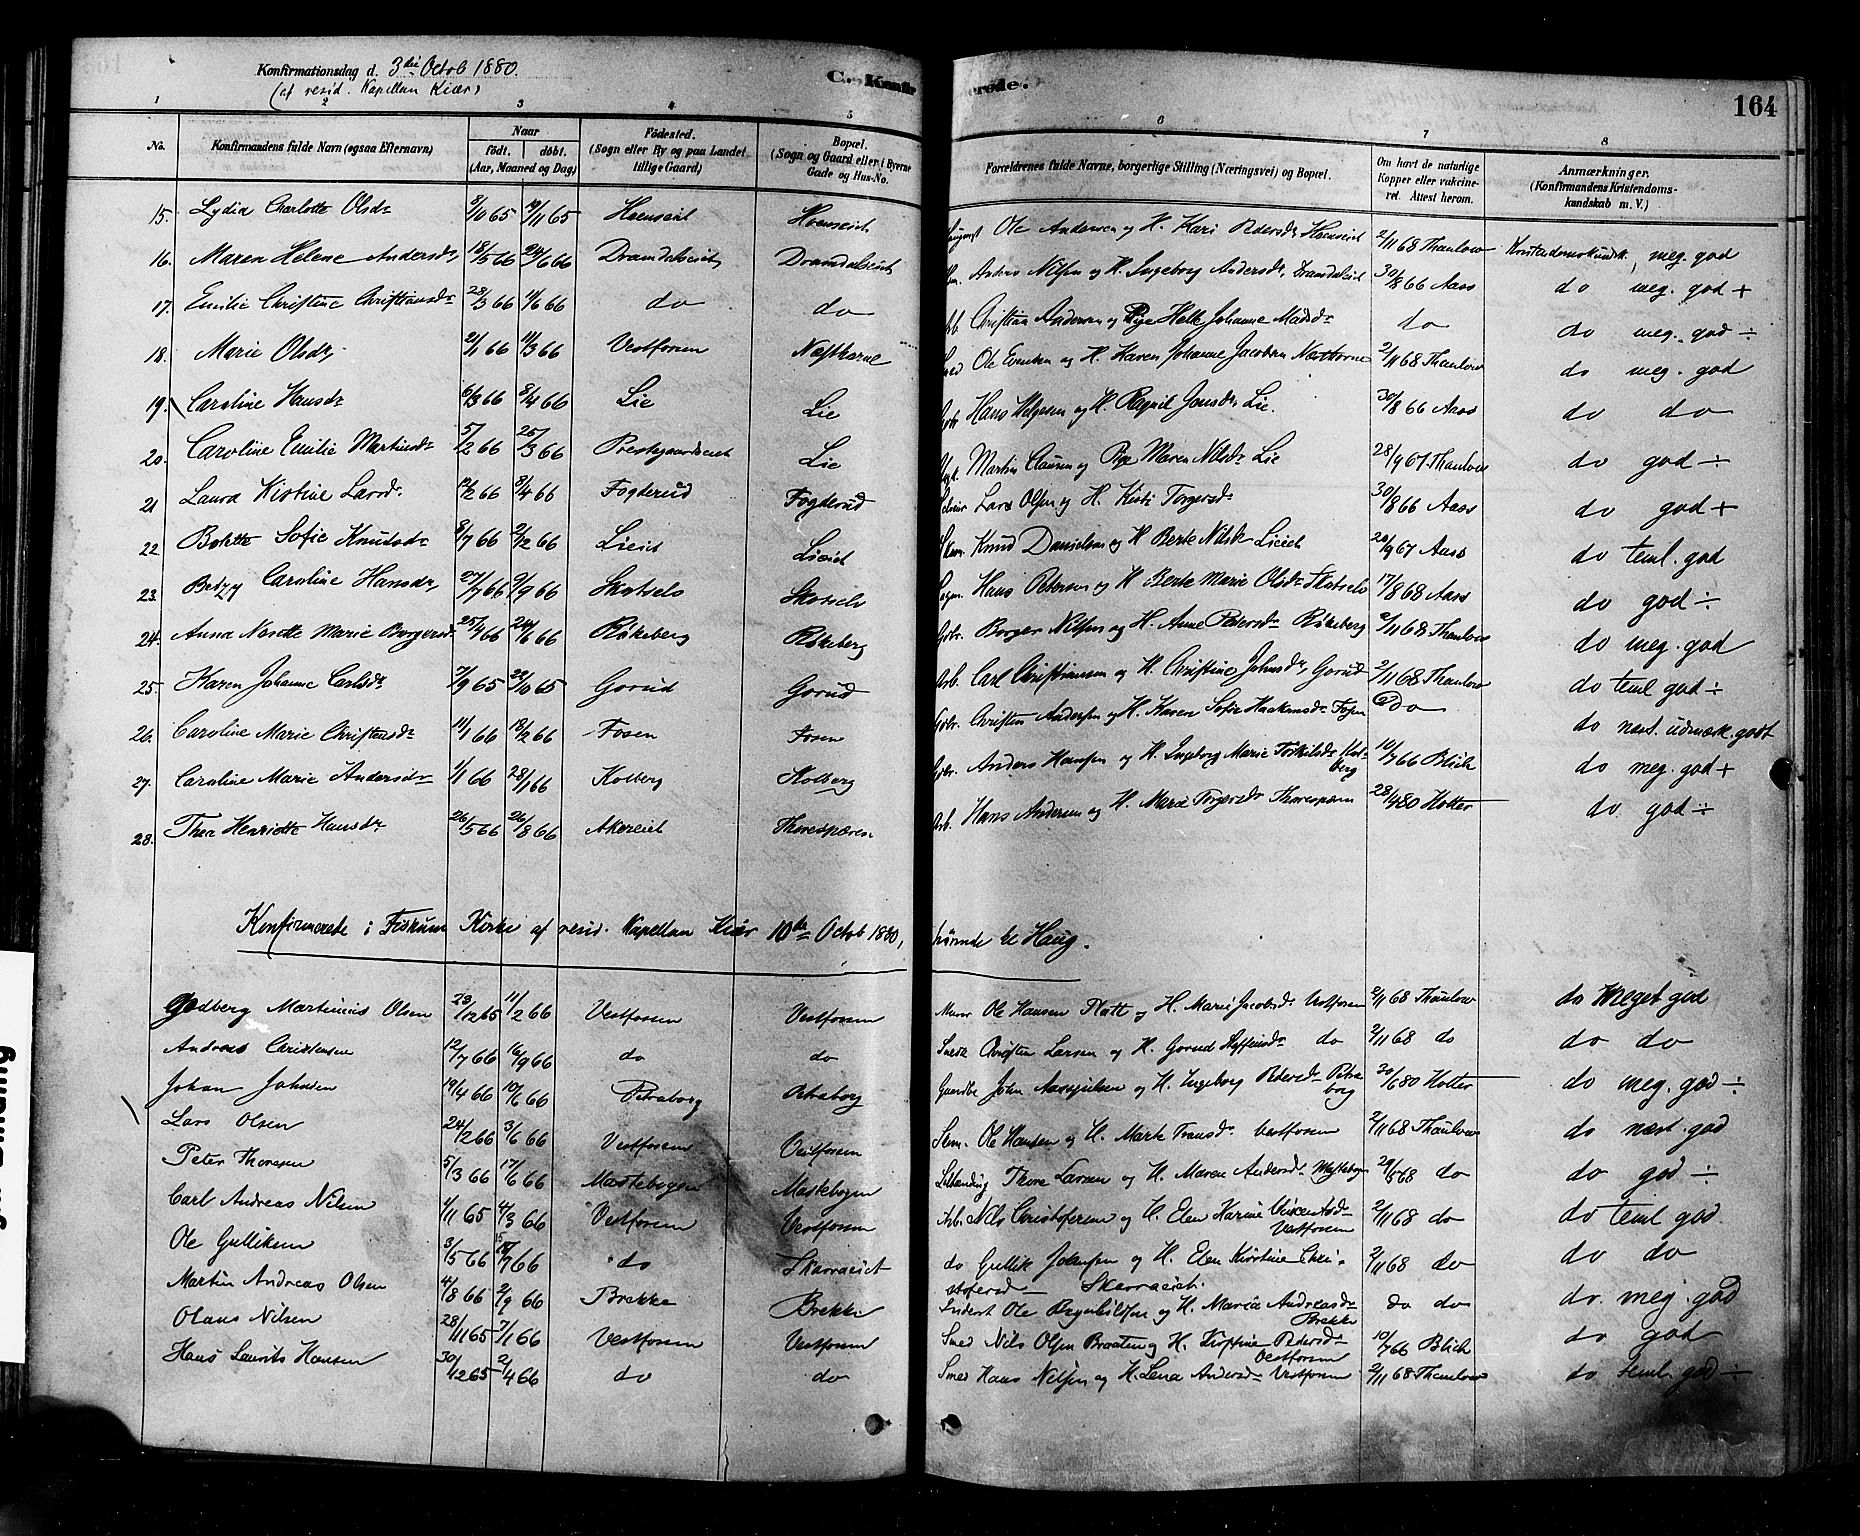 Konfirmationsdag d. 3die Octob 1880.
(af resid. Kapellan Kiær)
C. Konfir
erede.
164
1 2 3 4 5 6 7 8
No. Konfirmandens fulde Navn (ogsaa Efternavn) Naar født. døbt. (Aar, Maaned og Dag) Fødested. (Sogn eller By og paa Landet tillige Gaard) Bopæl. (Sogn og Gaard eller i Byerne Gade og Hus-No. Forældrenes fulde Navne, borgerlige Stilling (Næringsvei) og Bopæl. Om havt de naturlige Kopper eller vakcineret. Attest herom. Anmærkninger. (Konfirmandens Kristendomskundskab m. V.)
15. Lydia Charlotte Olsdr 9/10 65 19/11 65 Hoenseiet Hoenseiet Ole Andersen og H. Kari Pedersdr Hoenseiet 2/11 68 Thaulow Kristendomskundsk. meg. god
16. Maren Helene Andersdr 18/5 66 24/6 66 Dramdalseiet Dramdalseiet Anders Nilsen og H. Ingeborg Andersdr Dramdalseiet 30/8 66 Aass do meg. god +
17. Emilie Christine Christiansdr 28/3 66 11/6 66 do do Christian Andersen og Pige Helle Johanne Madsdr do do meg. god ÷
18. Marie Olsdr 21/1 66 11/3 66 Vestfossen Næstkorne Smed Ole Evensen og H. Karen Johanne Jacobsen Næstkorne 2/11 68 Thaulow do meg. god
19. Caroline Hansdr 6/3 66 8/4 66 Lie Lie Gbr Hans Helgesen og H. Ragnil Jonsdr Lie. 30/8 66 Aass do do
20. Caroline Emilie Martinsdr 5/2 66 25/3 66 Prestegaardseiet Lie Martin Clausen og Pige Maren Nilsdr Lie 28/9 67 Thaulow do god ÷
21 Laura Kistine Larsdr 12/2 66 3/4 66 Fogderud Fogderud Lars Olsen og H. Kisti Torgersdr 30/8 66 Aass do god +
22 Bolette Sofie Knudsdr 8/7 66 2/12 66 Lieeiet Lieeiet Knud Danielsen og H Berte Nilsdr Lieeiet 28/9 67 Aass do teml. god
23. Betzy Caroline Hansdr 27/7 66 9/9 66 Skotselv Skotselv Hans Petersen og H Berte Marie Olsdr Skotselv 17/8 68 Aass do god ÷
24. Anna Nesette Marie Borgersdr 25/4 66 24/6 66 Røkeberg Røkeberg Gbr. Borger Nilsen og H. Anne Pedersdr Røkeberg 2/11 68 Thaulow do meg. god
25. Karen Johanne Carlsdr 7/9 65 22/10 65 Gorud Gorud Arb. Carl Christiansen og H. Christine Johnsdr Gorud 2/11 68 Thaulow do teml god ÷
26. Caroline Marie Christensdr 11/1 66 18/2 66 Fosen Fosen Gbr. Christen Andersen og H. Karen Sofie Haakensdr Fosen do do næst. udmærk. godt
27. Caroline Marie Andersdr 1/1 66 28/1 66 Kolberg Kolberg Gbr. Anders Hansen og H. Ingeborg Marie Torkildsdr Kolberg 10/7 66 Blich do meg. god +
28. Thea Henriette Hansdr 26/5 66 26/8 66 Akereiet Thorespæren Arb. Hans Andersen og H. Marie Torgersdr Thorespæren 28/4 80 Hotter do god ÷
Konfirmerede i Fiskum Kirke af resid. Kapellan Kiær 10de Octob 1880, hørende til Haug.
Godberg Martinius Olsen 23/12 65 11/2 66 Vestfossen Vestfossen Murer Ole Hansen Flatt og H. Marie Jacobsdr Vestfossen 2/11 68 Thaulow do Meget god
Andreas Christensen 12/7 66 16/9 66 do do Christen Larsen og H. Gorud do 2/11 68 do do do
Johan Johnsen 19/4 66 10/6 66 Petraborg Petraborg Gaardbr John Aasmulsen og H. Ingeborg Pedersdr Petraborg 30/6 80 Hotter do meg. god ÷
Lars Olsen 24/2 66 3/6 66 Vestfossen Vestfossen Ole Hansen og H. Marte Fransdr Vestfossen 2/11 68 Thaulow do næst. god
Peter Thoresen 5/3 66 17/6 66 Mastebogen Mastebogen Thore Larsen og H. Maren Andersdr Mastebogen 29/5 68 do do god ÷
Carl Andreas Nilsen 1/11 65 4/3 66 Vestfossen Vestfossen Arb. Nils Christofersen og H. Elen Karine Vincentsdr Vestfossen 2/11 68 do do teml god.
Ole Gulliksen 3/5 66 15/7 66 do Skarraeiet do Gullik Johansen og H. Elen Kirstine Christofersd Skarraeiet. 2/11 68 do do do
Martin Andreas Olsen 4/8 66 2/9 66 Brekke Brekke Inderst Ole Brynhildsen og H. Maria Andreasdr Brekke do do do. meg. god
Olaus Nilsen 28/11 65 7/1 66 Vestfossen Vestfossen Smed Nils Olsen Braaten og H. Kirstine Pedersdr Vestfossen 10/7 66 Blich do god
Hans Laurits Hansen 30/12 65 2/4 66 do do Smed Hans Nilsen og H. Lena Andersdr Vestfossen 2/11 68 Thaulow do teml. god ÷